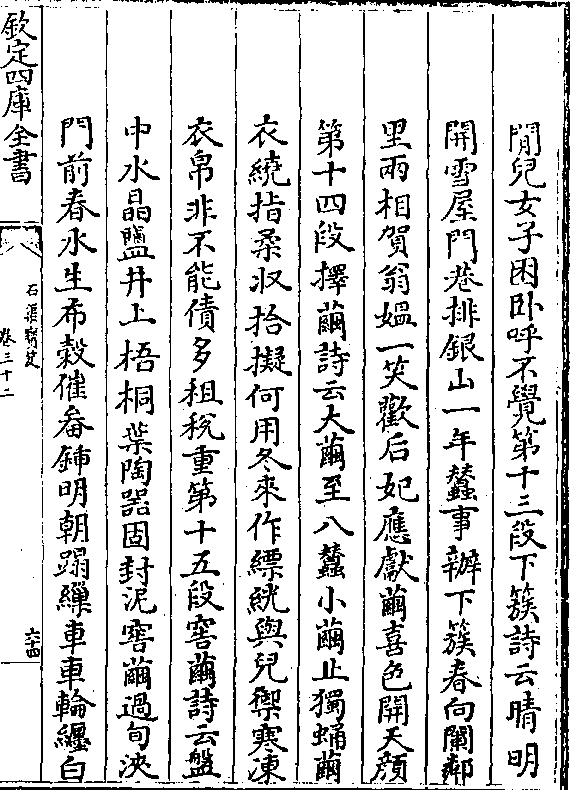 閒兒女子困卧呼不覺第十三段下簇詩云晴明
開雪屋門巷排銀山一年蠶事辦下簇春向闌鄰
里兩相賀翁媪一笑歡后妃應獻繭喜色開天顔
第十四段擇繭詩云大繭至八蠶小繭止獨蛹繭
衣繞指柔收拾擬何用冬來作縹絖與兒禦寒凍
衣帛非不能債多租稅重第十五段窖繭詩云盤
中水晶鹽井上梧桐葉陶器固封泥窖繭過旬浹
門前春水生布穀催畚鍤明朝蹋繅車車輪纏白
欽定四庫全書
石渠寳笈
卷三十二
六十四